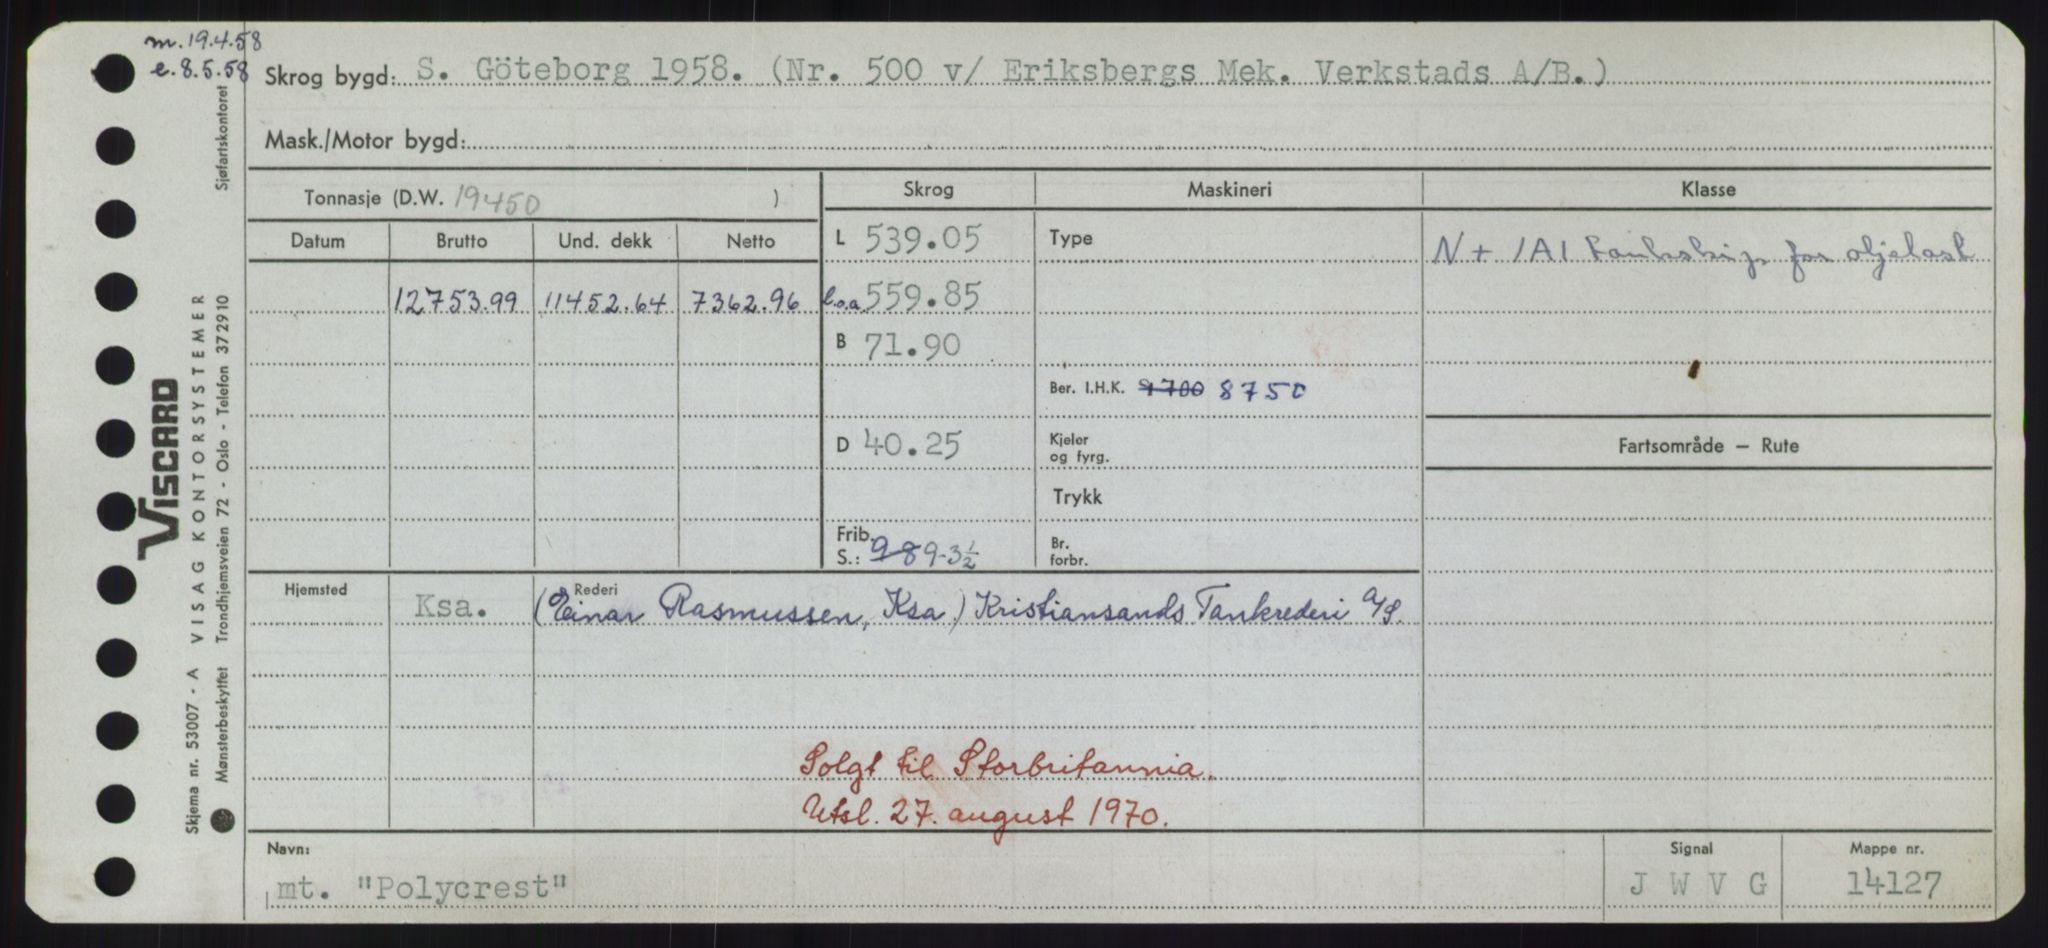 m. 19.4.58
e. 8.5.58
Skrog bygd: S. Göteborg 1958. (Nr. 500 v/ Eriksbergs Mek. Verkstads A/B.)
Mask./Motor bygd:
Tonnasje (D.W. 19450 )
Skrog
Maskineri
Klasse
Datum
Brutto
Und. dekk
Netto
L 539.05
Type
N + 1A1 Tankskip for oljelast
12753.99 11452.64 7362.96
l.o.a. 559.85
B 71.90
Ber. I.H.K. 9700 8750
D 40.25
Kjeler
og fyrg.
Fartsområde — Rute
Trykk
Frib.
S.: 9-8 9-3½
Br.
forbr.
Hjemsted
Ksa.
Rederi
(Einar Rasmussen, Ksa.) Kristiansands Tankrederi A/S.
Solgt til Storbritannia.
Utsl. 27. august 1970.
Navn:
mt. "Polycrest"
Signal
J W V G
Mappe nr.
14127
Skjema nr. 53007 - A VISAG KONTORSYSTEMER
VISCARD
Mønsterbeskyttet Trondhjemsveien 72 - Oslo - Telefon 372910
Sjøfartskontoret